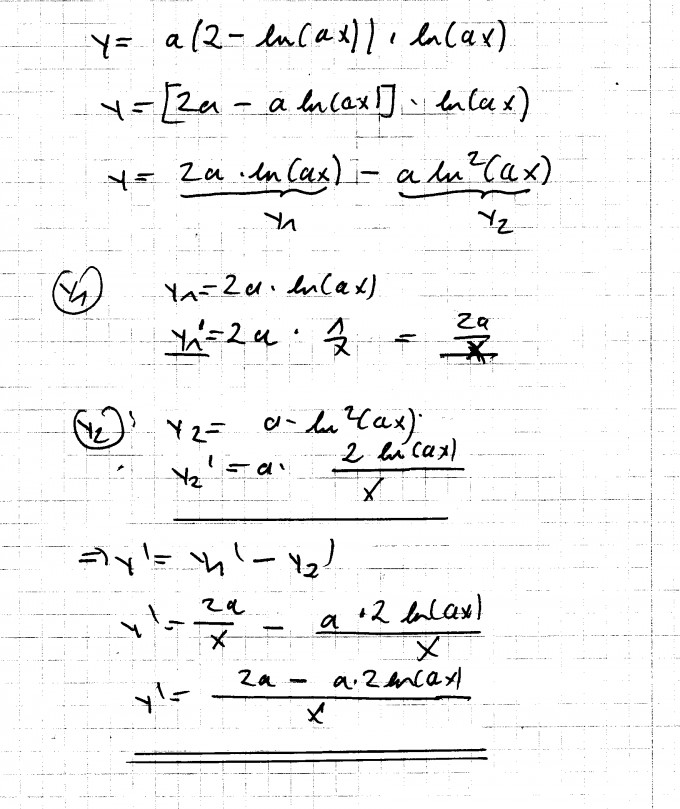 y = a(2 - ln(ax)) · ln(ax)
y = [2a - a ln(ax)] · ln(ax)
y = 2a · ln(ax) - a ln²(ax)
y₁ y₂
y₁ y₁ = 2a · ln(ax)
y₁' = 2a · 1/x = 2a/x
y₂: y₂ = a · ln²(ax)
y₂' = a · 2 ln(ax)/x
⇒ y' = y₁' - y₂'
y' = 2a/x - a · 2 ln(ax)/x
y' = (2a - a · 2 ln(ax))/x